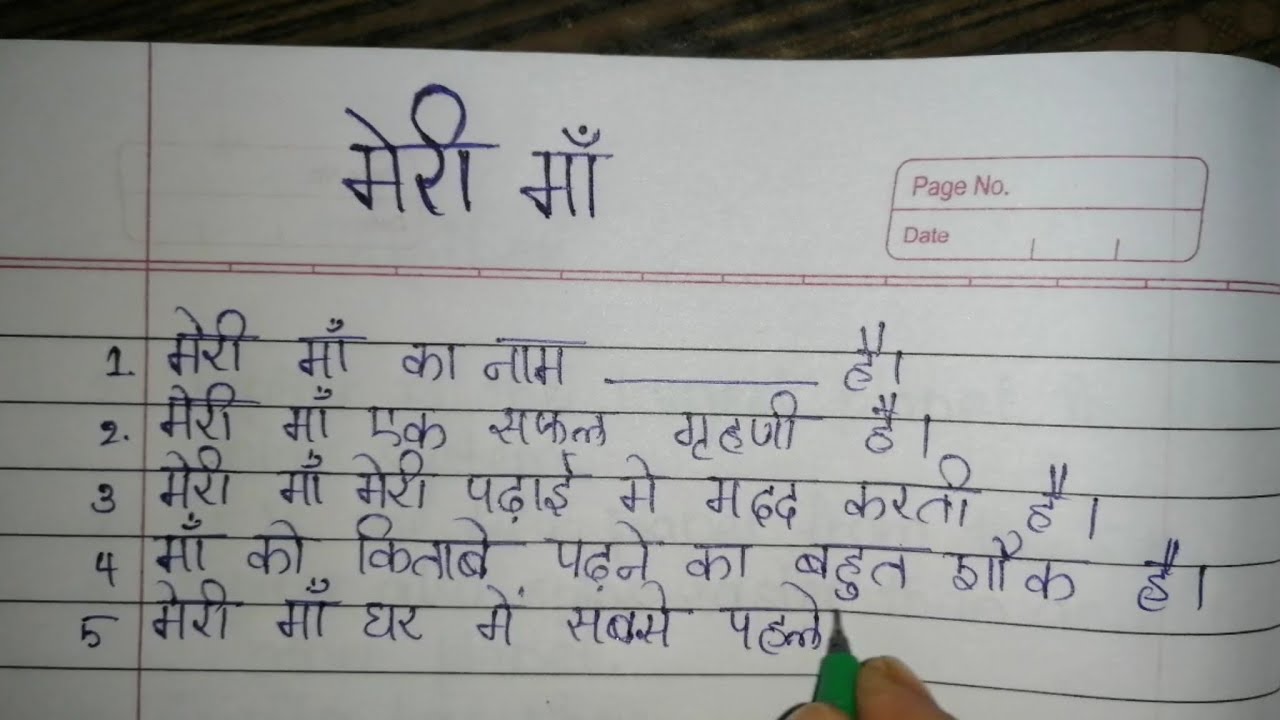 मेरी माँ
Page No.
Date
1. मेरी माँ का नाम ________ है।
2. मेरी माँ एक सफल गृहणी है।
3 मेरी माँ मेरी पढ़ाई मे मदद करती है।
4 माँ को किताबे पढ़ने का बहुत शौक है।
5 मेरी माँ घर में सबसे पहले